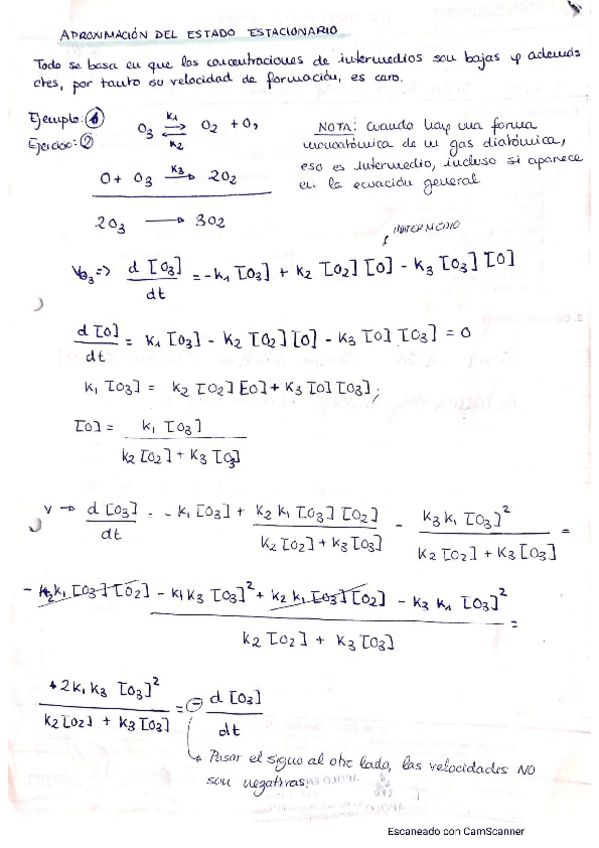 APROXIMACIÓN DEL ESTADO ESTACIONARIO
Todo se basa en que las concentraciones de intermedios son bajas y además
ctes, por tanto su velocidad de formación, es cero.
Ejemplo: 6
Ejercicio: 2
O3 ⇌ O2 + O,
K1
K2
O + O3 —K3→ 2O2
2O3 → 3O2
NOTA: Cuando hay una forma
monoatómica de un gas diatómico,
eso es intermedio, incluso si aparece
en la ecuación general
INTERMEDIO
VO3 => d[O3]/dt = -k1[O3] + k2[O2][O] - k3[O3][O]
d[O]/dt = k1[O3] - k2[O2][O] - k3[O][O3] = 0
k1[O3] = k2[O2][O] + k3[O][O3];
[O] = k1[O3] / k2[O2] + k3[O3]
v → d[O3]/dt = -k1[O3] + k2k1[O3][O2] / k2[O2] + k3[O3] - k3k1[O3]² / k2[O2] + k3[O3] =
-k2k1[O3][O2] - k1k3[O3]² + k2k1[O3][O2] - k3k1[O3]² / k2[O2] + k3[O3] =
+2k1k3[O3]² / k2[O2] + k3[O3] = - d[O3]/dt
Pasar el signo al otro lado, las velocidades NO
son negativas.
Escaneado con CamScanner